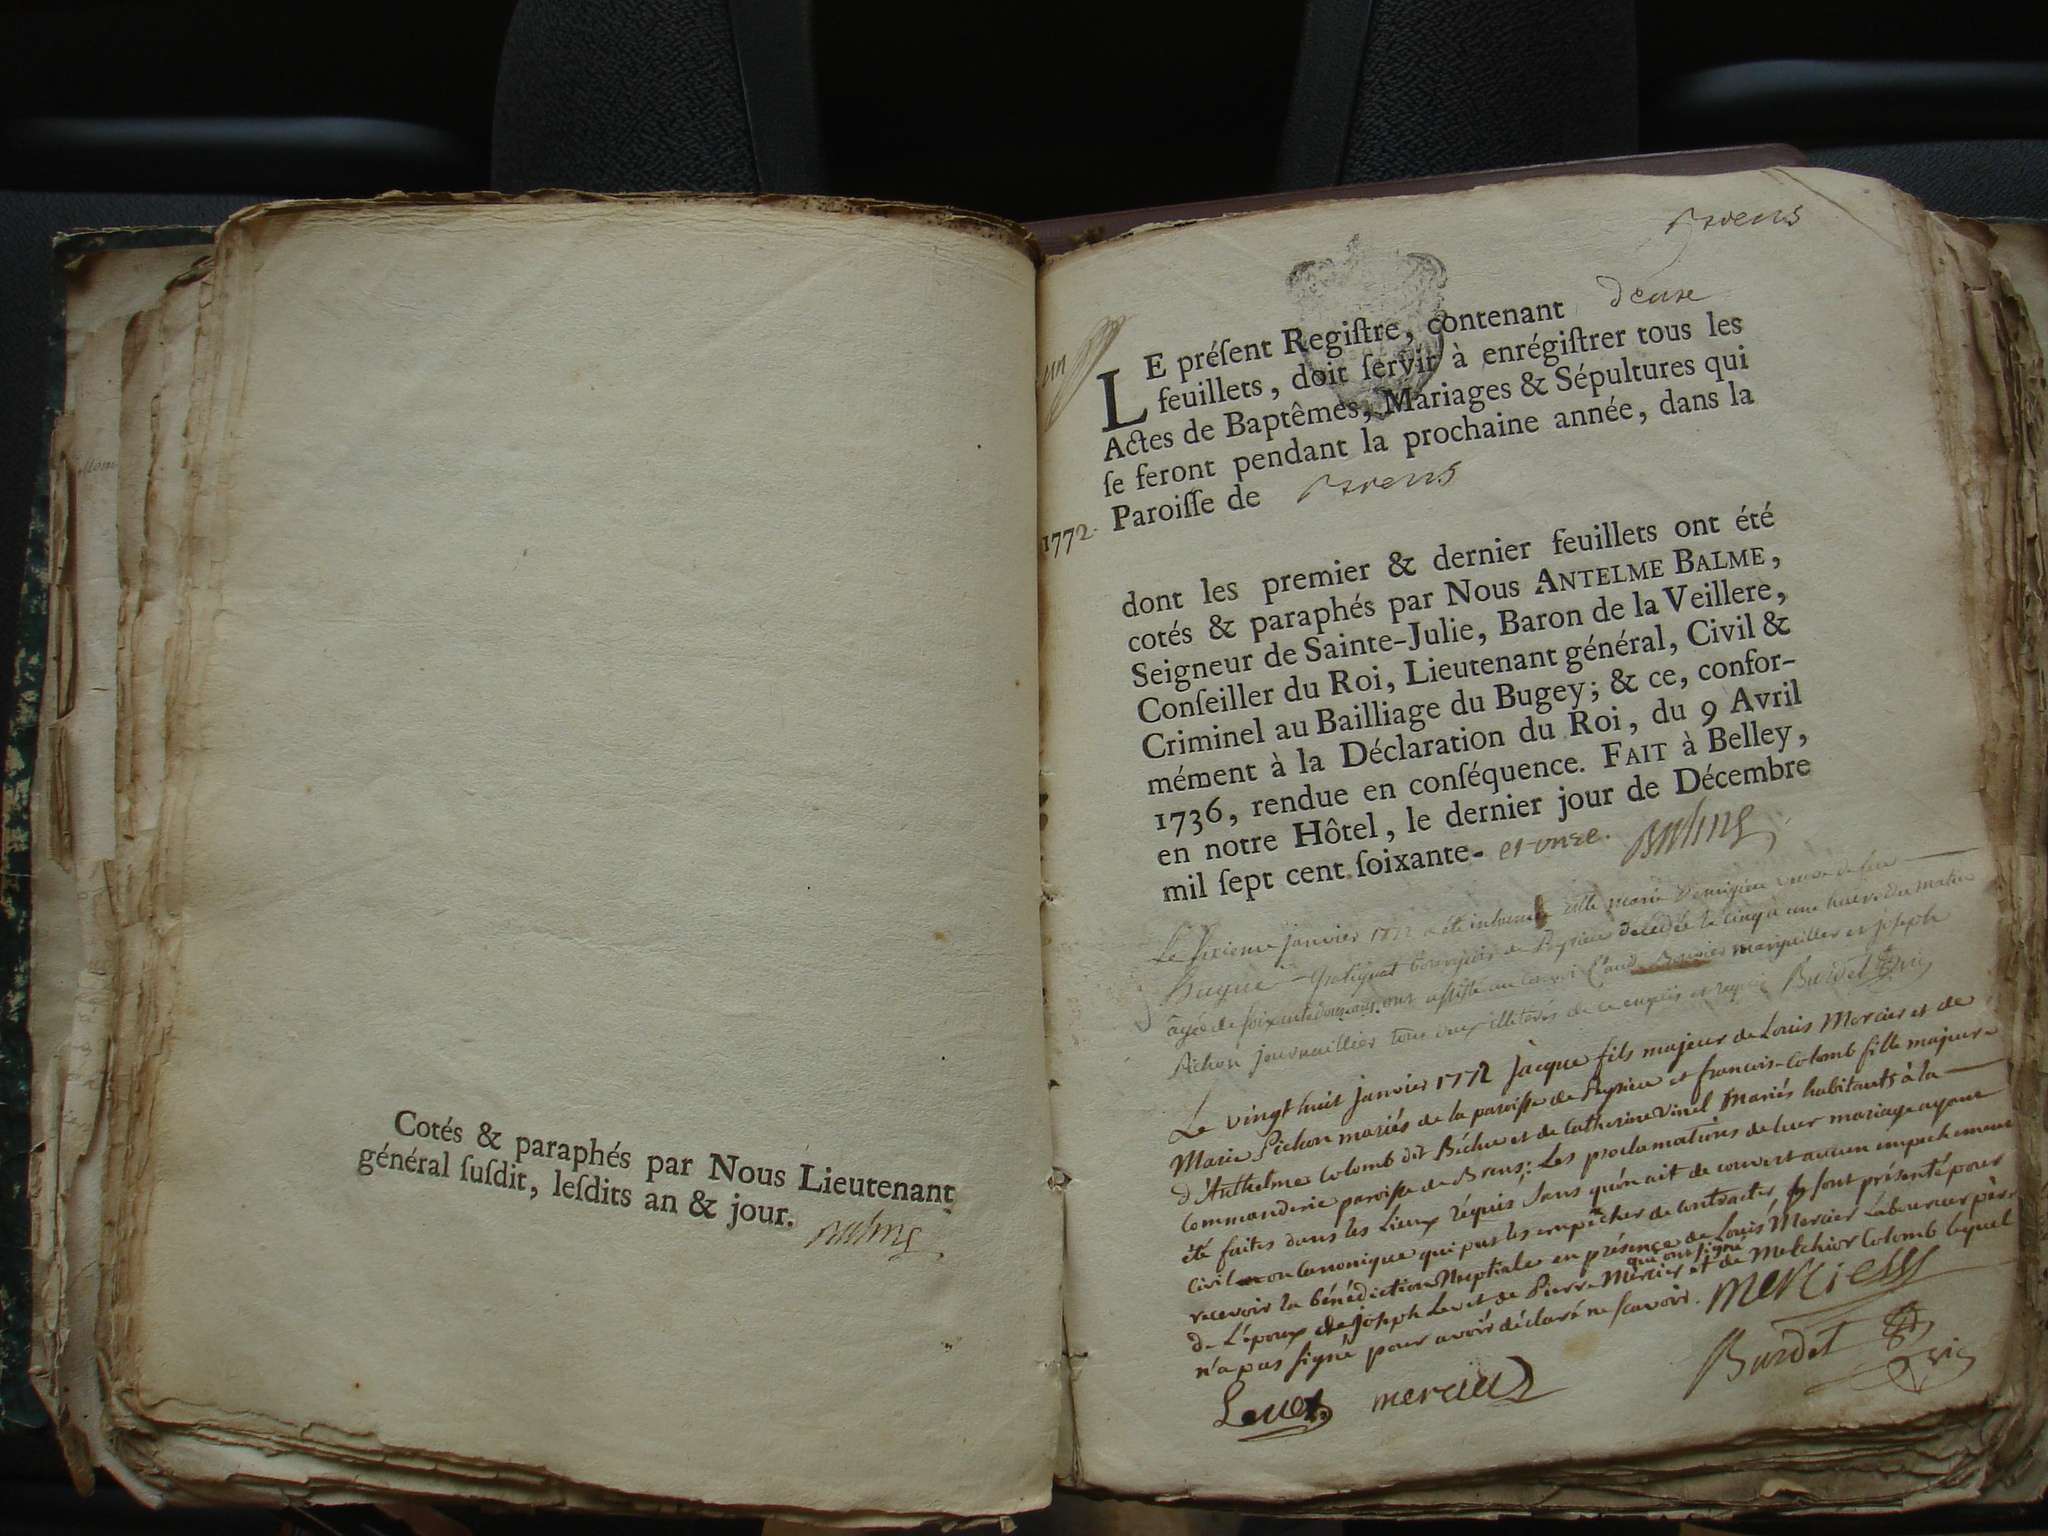 Cotés & paraphés par Nous Lieutenant
général ſuſdit, leſdits an & jour.
Balme
Brens
un
LE préſent Regiſtre, contenant douze
feuillets, doit ſervir à enrégiſtrer tous les
Actes de Baptêmes, Mariages & Sépultures qui
ſe feront pendant la prochaine année, dans la
1772. Paroiſſe de Brens
dont les premier & dernier feuillets ont été
cotés & paraphés par Nous ANTELME BALME,
Seigneur de Sainte-Julie, Baron de la Veillere,
Conſeiller du Roi, Lieutenant général, Civil &
Criminel au Bailliage du Bugey; & ce, confor-
mément à la Déclaration du Roi, du 9 Avril
1736, rendue en conſéquence. FAIT à Belley,
en notre Hôtel, le dernier jour de Décembre
mil ſept cent ſoixante- et onze. Balme
Le ſixieme janvier 1772 a été inhumée marie veuve de feu
bourgeois de Peyrieu decedée le cinq a une heure du matin
âgée de ont aſſiſté au convoi Claude marguillier et joſeph
Pichon journaillier tous deux illiterés de ce enquis et requis Burdet
Le vingt huit janvier 1772 jacque fils majeur de Louis Mercier et de
Marie Pichon mariés de la paroiſſe de Peyrieu et francoiſe Colomb fille majeure
d'Anthelme Colomb dit Béchu et de Catherine Vinel Mariés habitants à la
Commanderie paroiſſe de Brens; Les proclamations de leur mariage ayant
été faites dans les Lieux réquis ſans qu'on ait decouvert aucun empechement
civil ou canonique qui put les empêcher de contracter, ſe ſont présenté pour
recevoir la bénédiction Nuptiale en présence de Louis Mercier Laboureur père
de L'époux de joſeph Levet de Pierre Mercier qui ont ſigné et de Melchior Colomb lequel
n'a pas ſigné pour avoir déclaré ne ſcavoir. Mercier
Burdet
Levet mercier